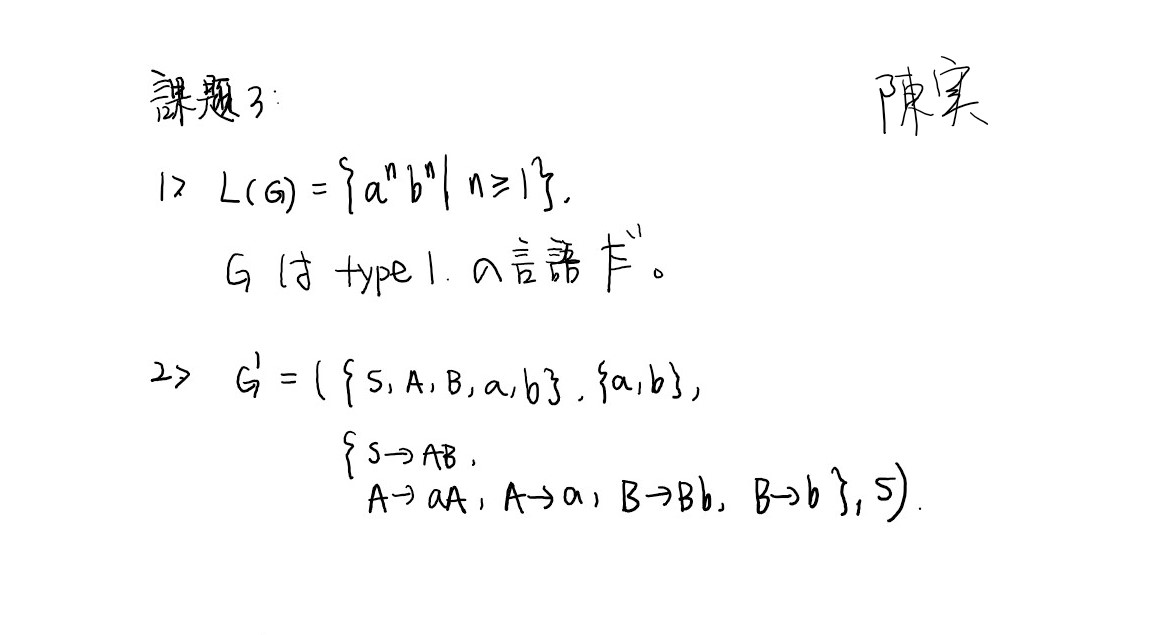 課題3:
陳実
1> L(G) = {aⁿbⁿ | n ≥ 1}.
G は type 1. の言語だ。
2> G' = ({S, A, B, a, b}, {a, b},
{S→AB,
A→aA, A→a, B→Bb, B→b}, S).